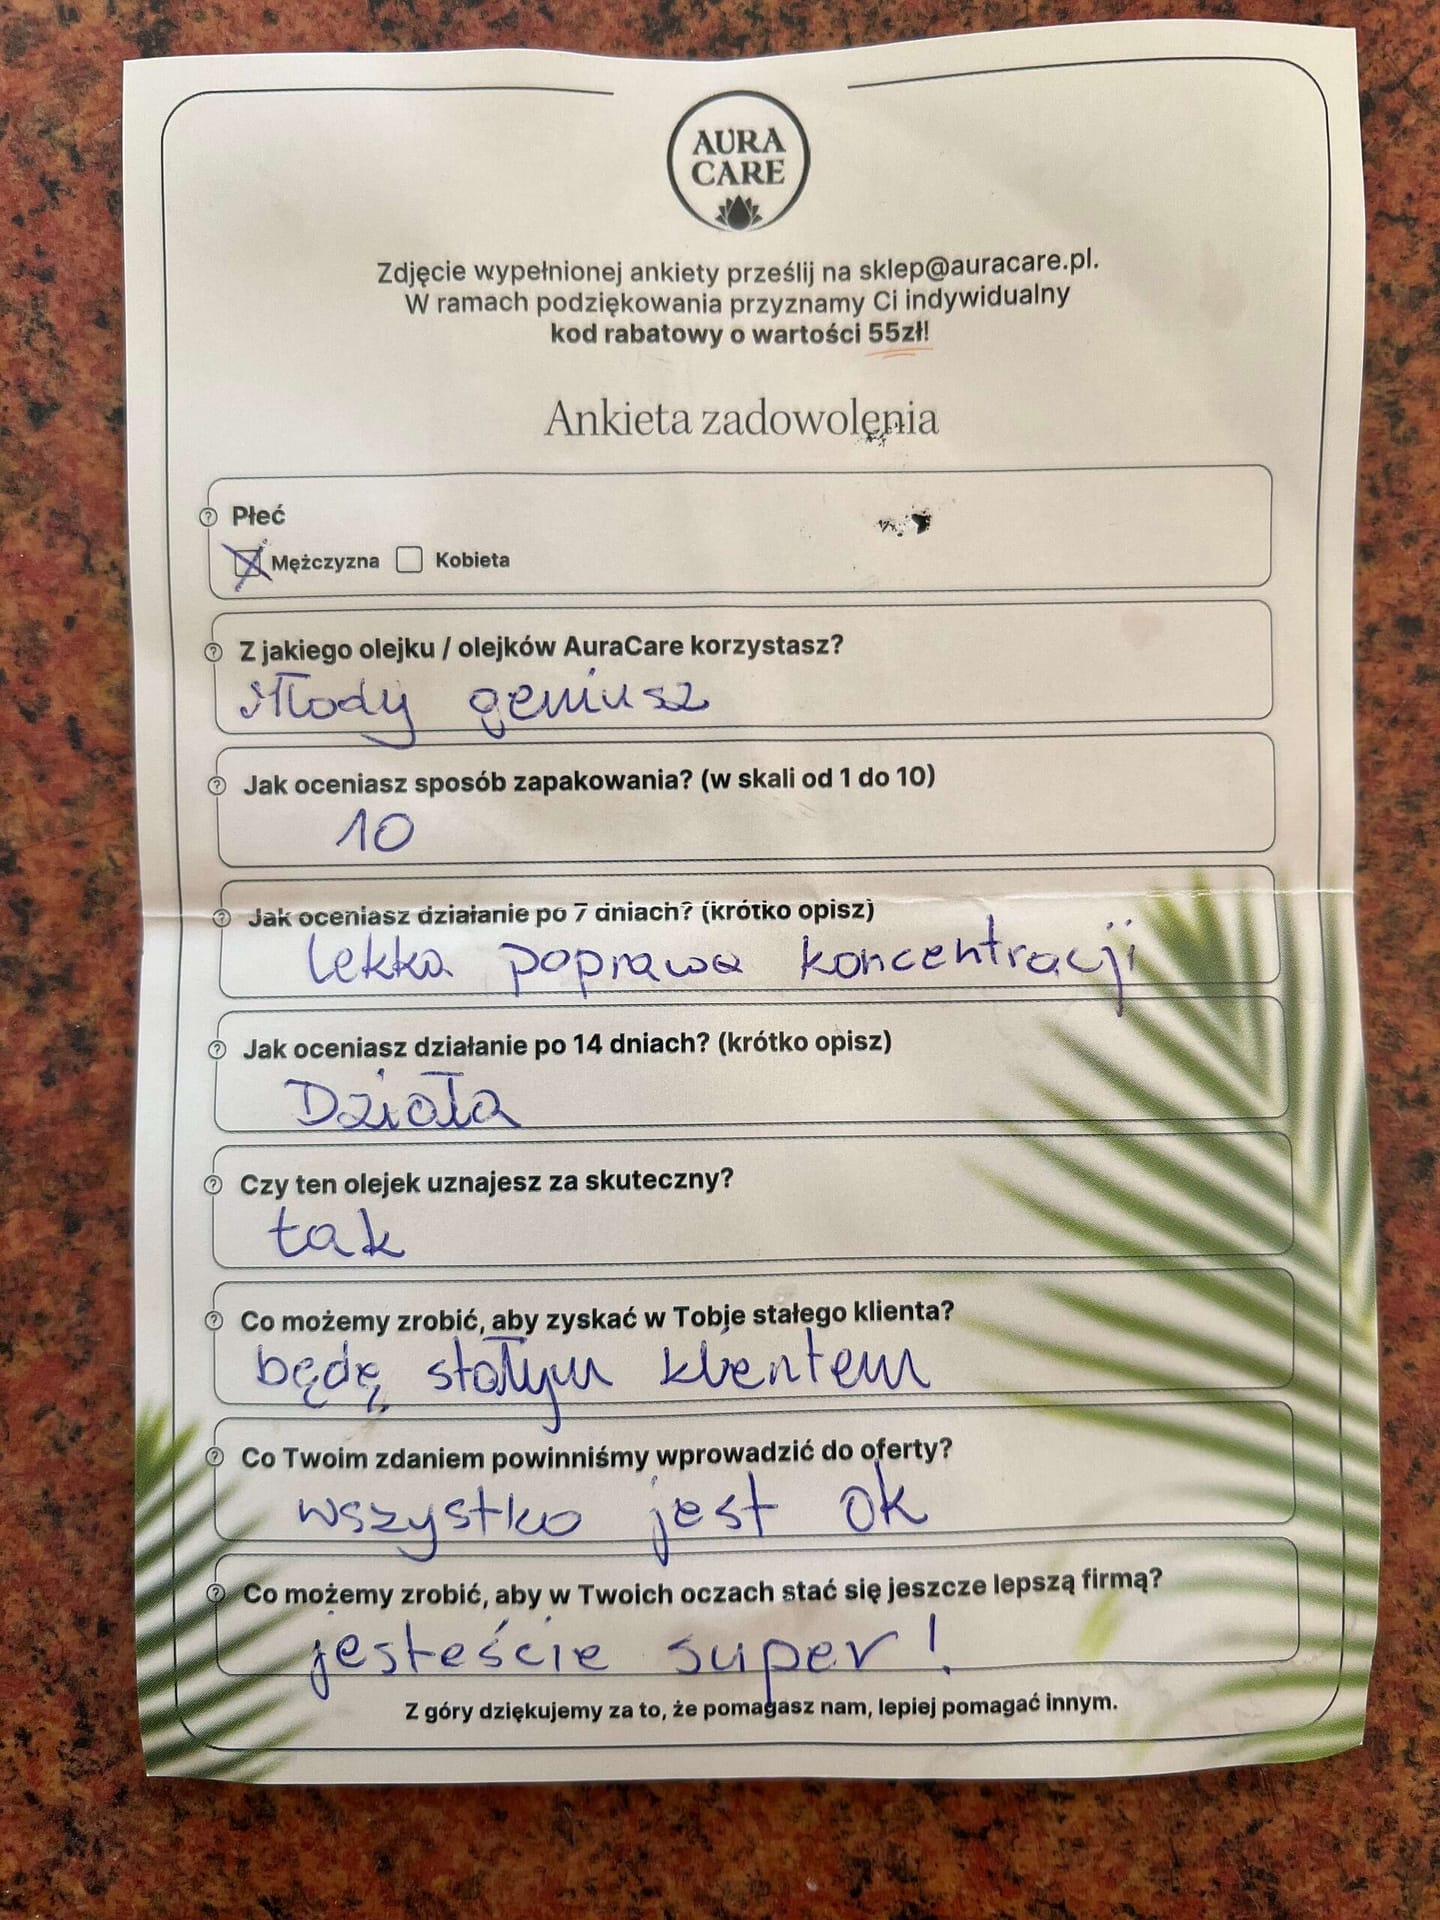 AURA
CARE
Zdjęcie wypełnionej ankiety prześlij na sklep@auracare.pl.
W ramach podziękowania przyznamy Ci indywidualny
kod rabatowy o wartości 55zł!
Ankieta zadowolenia
Płeć
Mężczyzna Kobieta
Z jakiego olejku / olejków AuraCare korzystasz?
Młody geniusz
Jak oceniasz sposób zapakowania? (w skali od 1 do 10)
10
Jak oceniasz działanie po 7 dniach? (krótko opisz)
lekka poprawa koncentracji
Jak oceniasz działanie po 14 dniach? (krótko opisz)
Działa
Czy ten olejek uznajesz za skuteczny?
tak
Co możemy zrobić, aby zyskać w Tobie stałego klienta?
będę stałym klientem
Co Twoim zdaniem powinniśmy wprowadzić do oferty?
wszystko jest ok
Co możemy zrobić, aby w Twoich oczach stać się jeszcze lepszą firmą?
jesteście super!
Z góry dziękujemy za to, że pomagasz nam, lepiej pomagać innym.